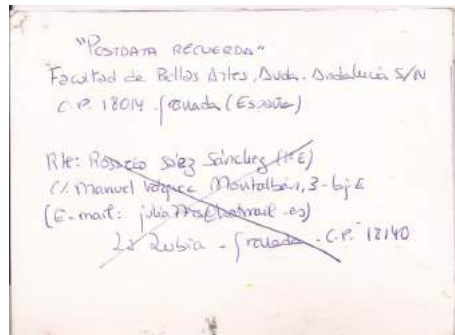 "POSTDATA RECUERDA"
Facultad de Bellas Artes, Avda. Andalucía S/N
C.P. 18014. Granada (España)
Rte: Rosario Sáez Sánchez
C/. Manuel Vázquez Montalbán, 3 - bj E
(E-mail: @hotmail.es)
La Zubia - Granada - C.P. 18140